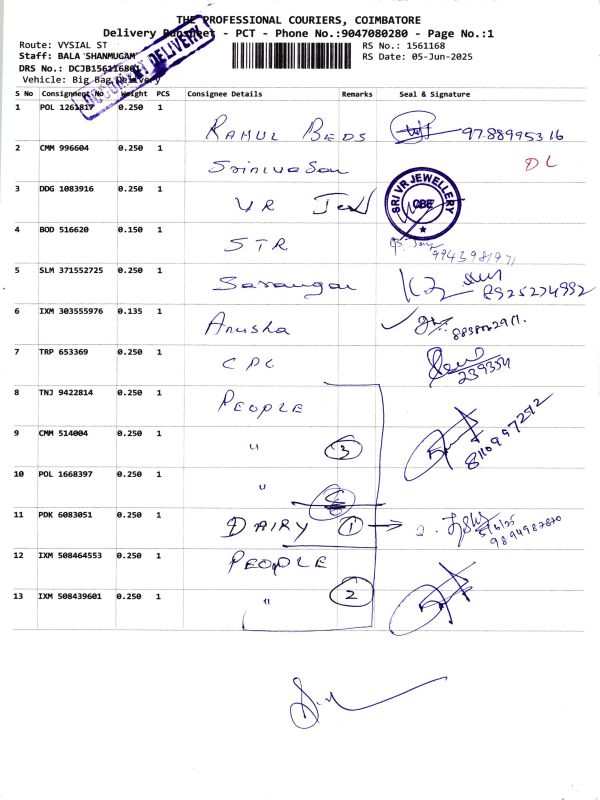 THE PROFESSIONAL COURIERS, COIMBATORE
Delivery Runsheet - PCT - Phone No.:9047080280 - Page No.:1
Route: VYSIAL ST RS No.: 1561168
Staff: BALA SHANMUGAM RS Date: 05-Jun-2025
DRS No.: DCJB15611680
Vehicle: Big Bag Delivery
DOCUMENT DELIVERY
S No Consignment No Weight PCS Consignee Details Remarks Seal & Signature
1 POL 1261817 0.250 1 RAHUL BEDS 9788995316
2 CMM 996604 0.250 1 Srinivasan DL
3 DDG 1083916 0.250 1 VR Jewl SRI VR JEWELLERY CBE
4 BOD 516620 0.150 1 STR 9943981971
5 SLM 371552725 0.250 1 Sarangai 8925274992
6 IXM 303555976 0.135 1 Anusha
7 TRP 653369 0.250 1 CPC 239354
8 TNJ 9422814 0.250 1 PEOPLE
9 CMM 514004 0.250 1 " 3 8110997292
10 POL 1668397 0.250 1 "
11 PDK 6083051 0.250 1 DAIRY 1 → 5/6/25
9894987870
12 IXM 508464553 0.250 1 PEOPLE
13 IXM 508439601 0.250 1 " 2